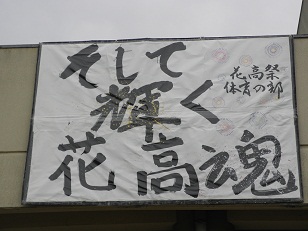 そして
輝く
花高魂
花高祭
体育の部